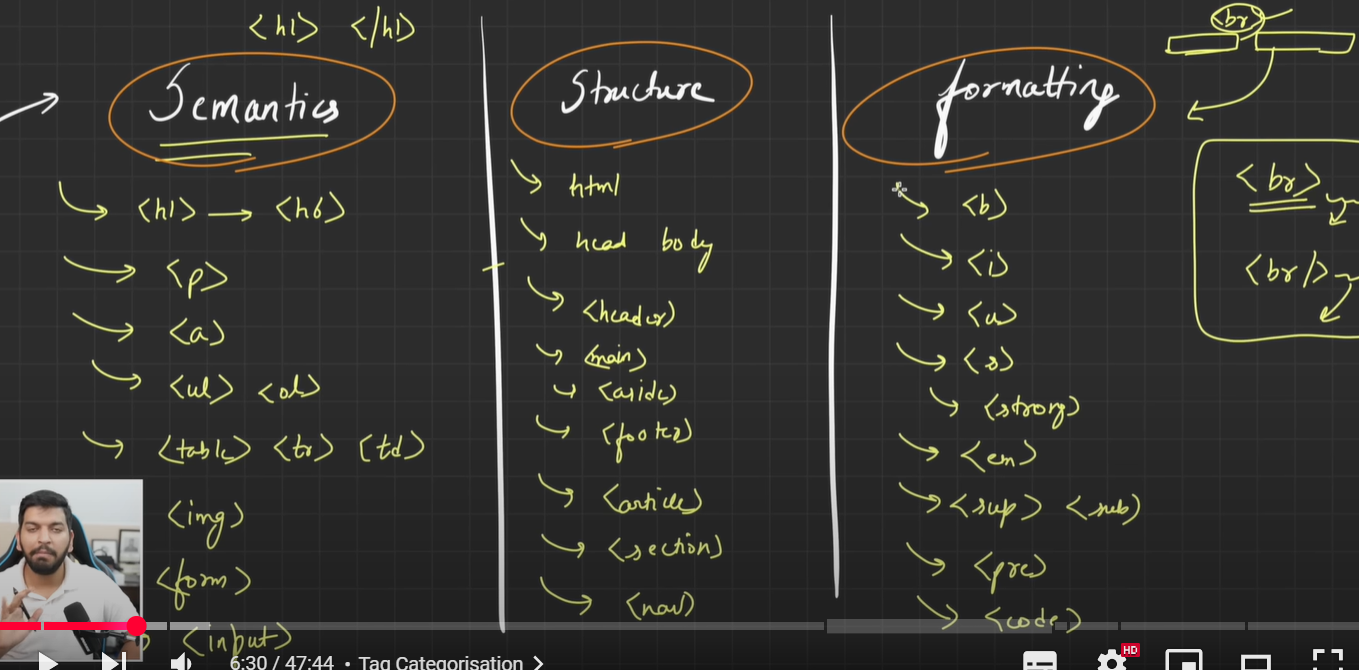 <h1> </h1>
Semantics
<h1> → <h6>
<p>
<a>
<ul> <ol>
<table> <tr> <td>
<img>
<form>
<input>
Structure
html
head body
<header>
<main>
<aside>
<footer>
<article>
<section>
<nav>
formatting
<b>
<i>
<u>
<s>
<strong>
<em>
<sup> <sub>
<pre>
<code>
<br>
<br>
<br/>
6:30 / 47:44 • Tag Categorisation >
HD